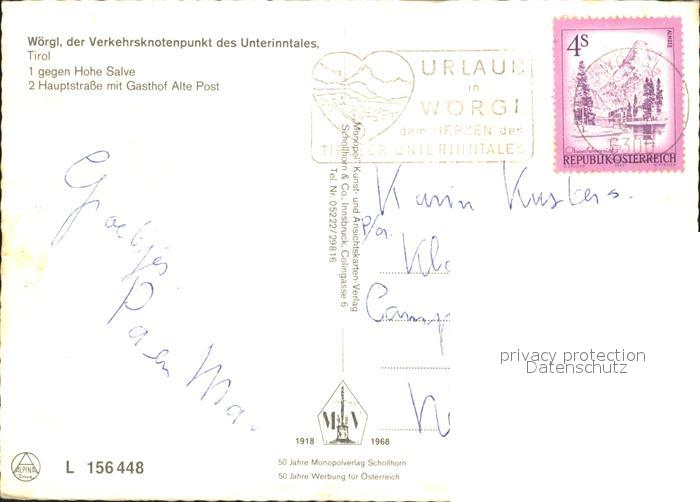 Wörgl, der Verkehrsknotenpunkt des Unterinntales,
Tirol
1 gegen Hohe Salve
2 Hauptstraße mit Gasthof Alte Post
URLAUB
in
WÖRGL
dem HERZEN des
TIROLER UNTERINNTALES
4S
ALMSEE
REPUBLIK ÖSTERREICH
6300
„Monopol" Kunst- und Ansichtskarten-Verlag
Schöllhorn & Co., Innsbruck, Colingasse 6
Tel. Nr. 05222/29816
Groetjes
Pa en Ma.
Karin Kusters.
p/a.
Kl
Camp
privacy protection
Datenschutz
M V
1918 1968
ALPINA
L 156 448
50 Jahre Monopolverlag Schöllhorn
50 Jahre Werbung für Österreich